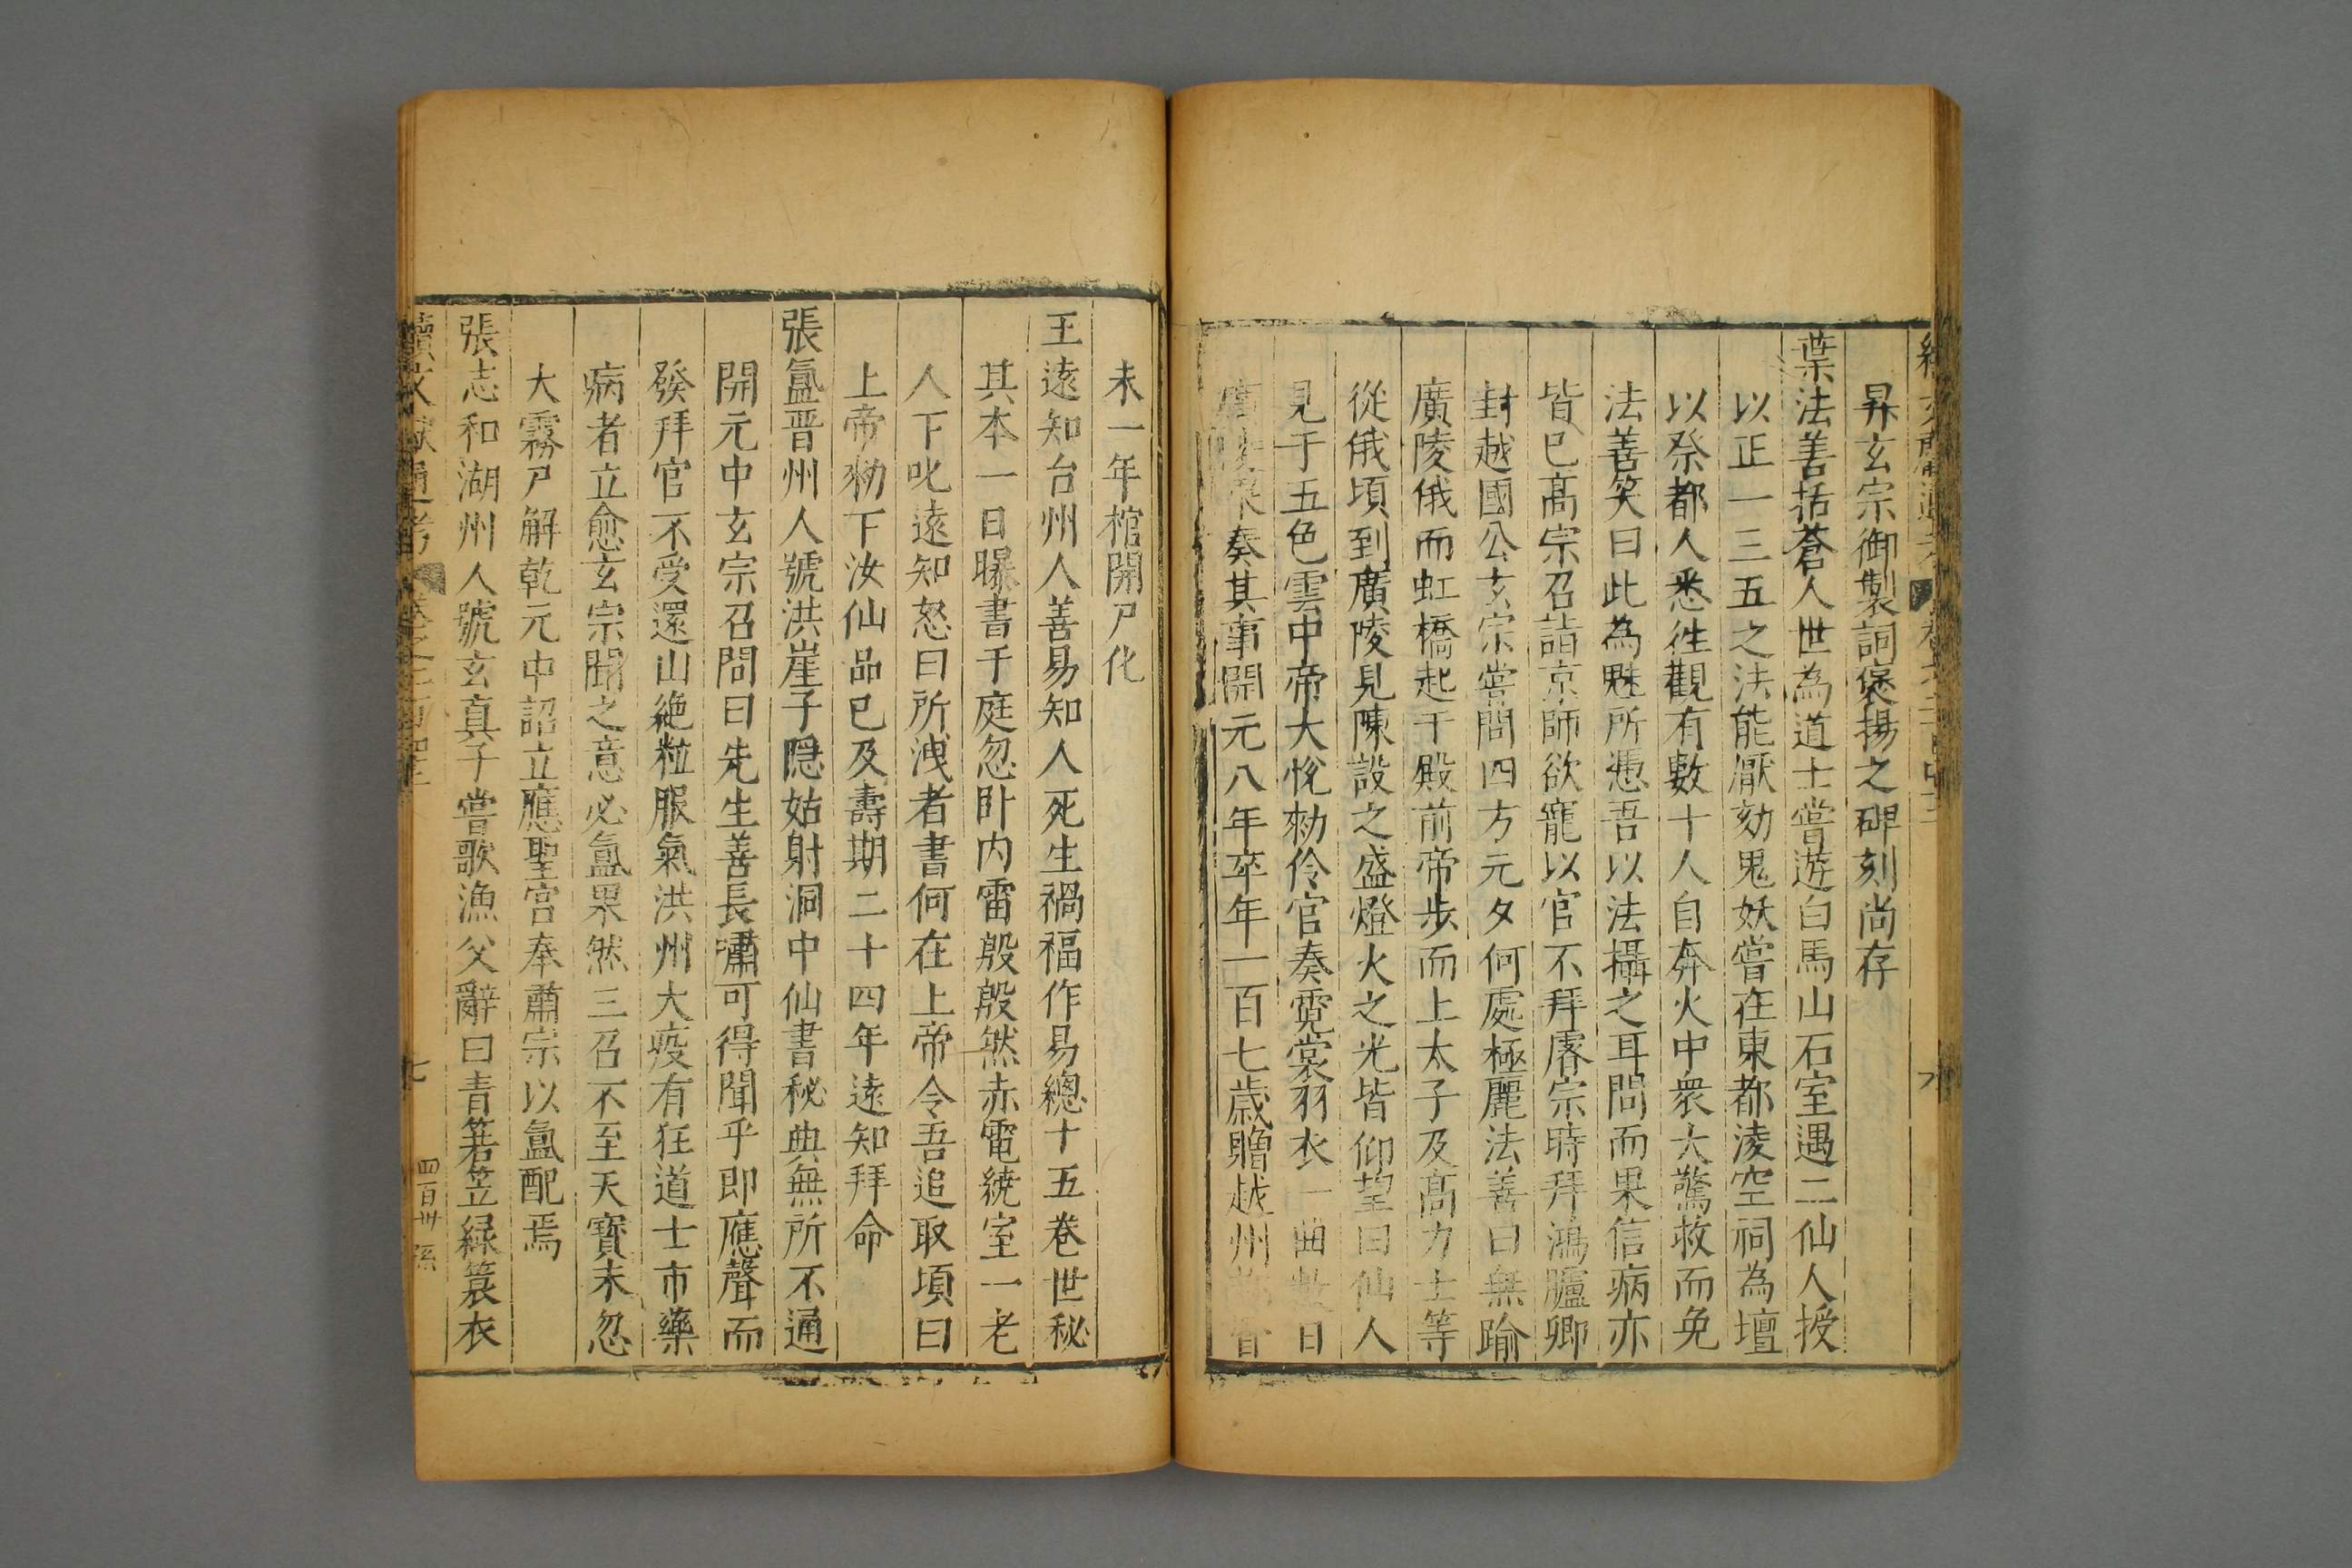 昇玄宗御製詞褒揚之碑刻尚存
葉法善括蒼人世為道士嘗遊白馬山石室遇二仙人授
以正一三五之法能厭劾鬼妖嘗在東都淩空祠為壇
以祭都人悉徃觀有數十人自奔火中衆大驚救而免
法善笑曰此為魅所慿吾以法攝之耳問而果信病亦
皆已髙宗召詣京師欲寵以官不拜睿宗時拜鴻臚卿
封越國公玄宗嘗問四方元夕何處極麗法善曰無踰
廣陵俄而虹橋起于殿前帝步而上太子及髙力士等
從俄頃到廣陵見陳設之盛燈火之光皆仰望曰仙人
見于五色雲中帝大悅勑伶官奏霓裳羽衣一曲數日
廣陵果奏其事開元八年卒年一百七歲贈越州都督
未一年棺開尸化
王遠知台州人善易知人死生禍福作易總十五卷世秘
其本一日曝書于庭忽卧内雷殷殷然赤電繞室一老
人下叱遠知怒曰所洩者書何在上帝令吾追取頃曰
上帝勑下汝仙品已及壽期二十四年遠知拜命
張氳晋州人號洪崖子隠姑射洞中仙書秘典無所不通
開元中玄宗召問曰先生善長嘯可得聞乎即應聲而
發拜官不受還山絶粒服氣洪州大疫有狂道士市藥
病者立愈玄宗聞之意必氳果然三召不至天寳末忽
大霧尸解乾元中詔立應聖宫奉肅宗以氳配焉
張志和湖州人號玄真子嘗歌漁父辭曰青箬笠緑蓑衣
續文獻通考 卷之二百四十三 七 四百卅 孫